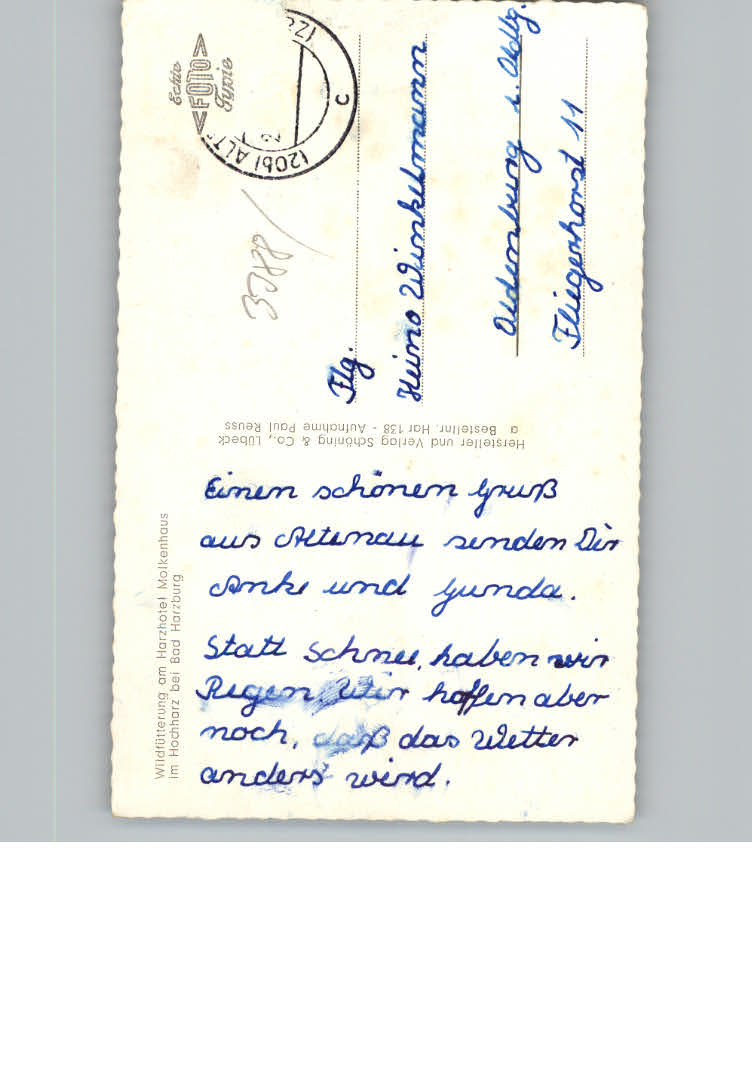 Echte
FOTO
Typie
(20b) ALT
c
3J88/
Flg.
Heino Winkelmann
Oldenburg i. Oldbg.
Fliegerhorst 11
Hersteller und Verlag Schöning & Co., Lübeck
Bestellnr. Har 138 - Aufnahme Paul Reuss
Wildfütterung am Harzhotel Molkenhaus
im Hochharz bei Bad Harzburg
Einen schönen Gruß
aus Altenau senden Dir
Anke und Gunda.
Statt Schnee, haben wir
Regen. Wir hoffen aber
noch, daß das Wetter
anders wird.